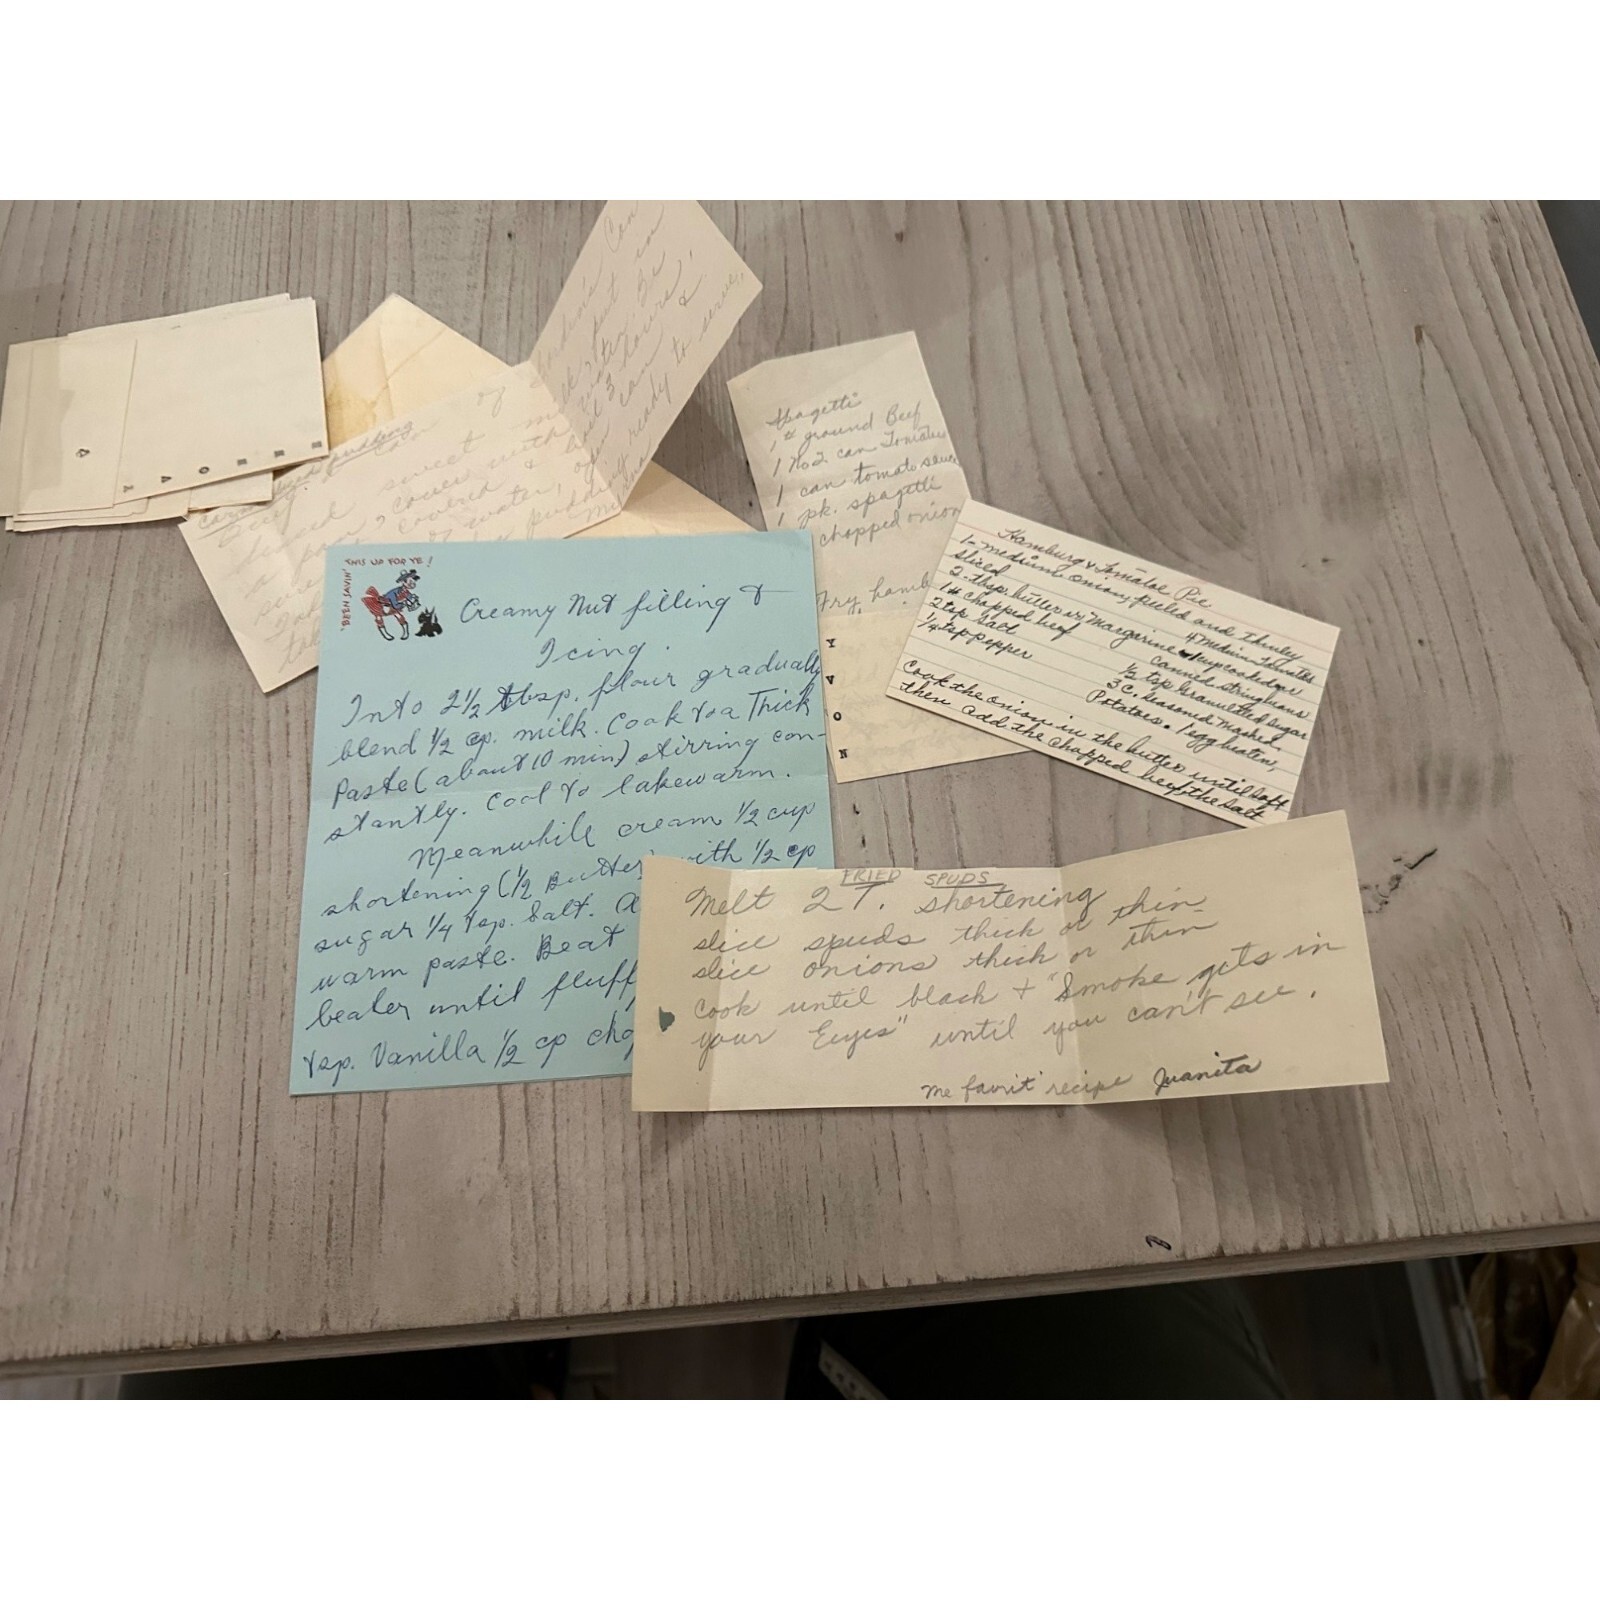 "BEEN SAVIN' THIS UP FOR YE!
Creamy Nut filling &
Icing.
Into 2½ tbsp. flour gradually
blend ½ cp. milk. Cook to a Thick
Paste (about 10 min) stirring con-
stantly. Cool to lakewarm.
Meanwhile cream ½ cup
shortening (½ Butter) with ½ cp
sugar ¼ tsp. Salt. A
warm paste. Beat
beater until fluff
tsp. Vanilla ½ cp cho
FRIED SPUDS
Melt 2 T. shortening
slice spuds thick or thin
slice onions thick or thin
cook until black + "Smoke gets in
your Eyes" until you can't see.
Me favrit recipe Juanita
Spagetti
1# ground Beef
1 No 2 can Tomatoes
1 can tomato sauce
1 pk. spagetti
chopped onion
Fry hamb
Y
V
O
N
Hamburg & Tomatoe Pie
1- medium onion, peeled and thinley
sliced
2- tbsp. butter or Margarine
1# chopped beef
2 tsp salt
¼ tsp pepper
4 medium Tomatoes
1 cup cooked or
canned string beans
½ tsp Granulated Sugar
3 C. seasoned mashed
Potatoes. 1 egg beaten,
Cook the onion in the butter until soft
then add the chopped beef, the salt
pudding
of Borden's Can
sweet milk put in
a pan, cover with water Be
covered & boil 3 hours,
of water, open can &
pudding ready to serve,